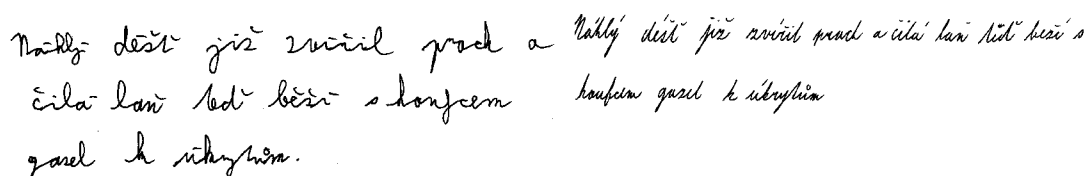 Náhlý déšť již zvířil prach a
čilá laň teď běží s houfcem
gazel k úkrytům.
Náhlý déšť již zvířil prach a čilá laň teď běží s
houfcem gazel k úkrytům